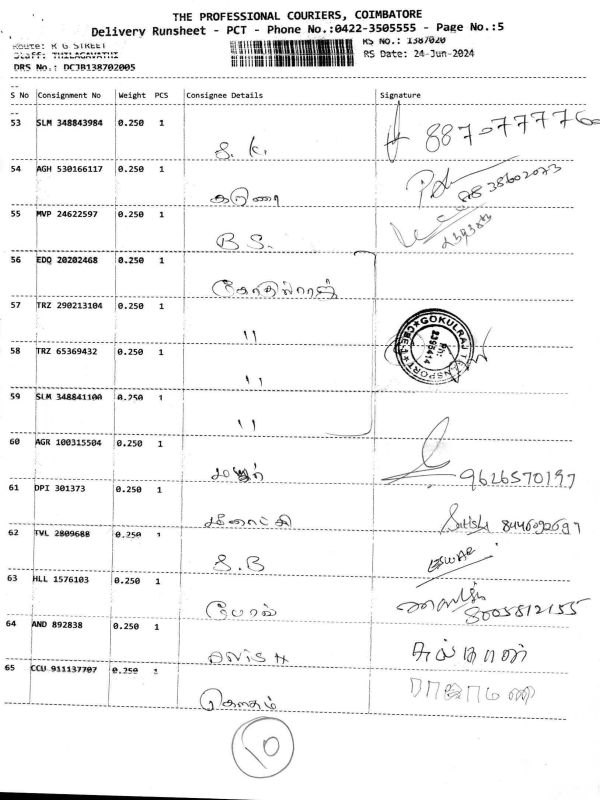 THE PROFESSIONAL COURIERS, COIMBATORE
Delivery Runsheet - PCT - Phone No.:0422-3505555 - Page No.:5
Route: R G STREET RS No.: 1387020
Staff: THILAGAVATHI RS Date: 24-Jun-2024
DRS No.: DCJB138702005
--
S No Consignment No Weight PCS Consignee Details Signature
--
53 SLM 348843984 0.250 1
S. K.
54 AGH 530166117 0.250 1
கருணை
55 MVP 24622597 0.250 1
B S.
56 EDQ 20202468 0.250 1
57 TRZ 290213104 0.250 1
" GOKULRAJ TRANSPORT CBE-1 Ph: 2395414
58 TRZ 65369432 0.250 1
"
59 SLM 348841100 0.250 1
"
60 AGR 100315504 0.250 1
9626570197
61 DPI 301373 0.250 1
மீனாட்சி Sathish
62 TVL 2809688 0.250 1
S.B ESWAR
63 HLL 1576103 0.250 1
போஸ் 8005812155
64 AND 892838 0.250 1
சுல்தான்
65 CCU 911137707 0.250 1
கௌதம் ராஜாமணி
10